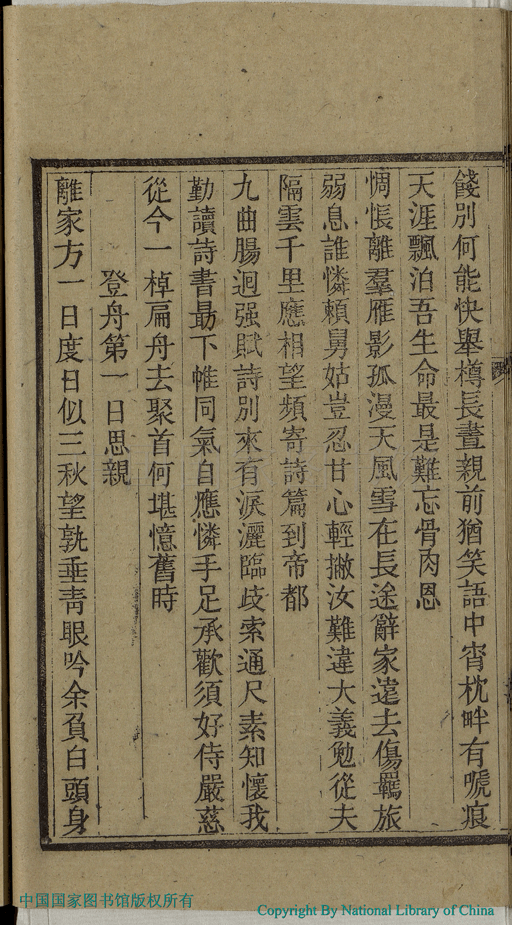 餞别何能快舉樽長晝親前猶笑語中宵枕畔有啼痕
天涯飄泊吾生命最是難忘骨肉恩
惆悵離羣雁影孤漫天風雪在長途辭家遠去傷羈旅
弱息誰憐賴舅姑豈忍甘心輕撇汝難違大義勉從夫
隔雲千里應相望頻寄詩篇到帝都
九曲腸迴强賦詩别來有淚灑臨歧索通尺素知懷我
勤讀詩書勗下帷同氣自應憐手足承歡須好侍嚴慈
從今一棹扁舟去聚首何堪憶舊時
登舟第一日思親
離家方一日度日似三秋望孰垂靑眼吟余負白頭身
中国国家图书馆版权所有
Copyright By National Library of China